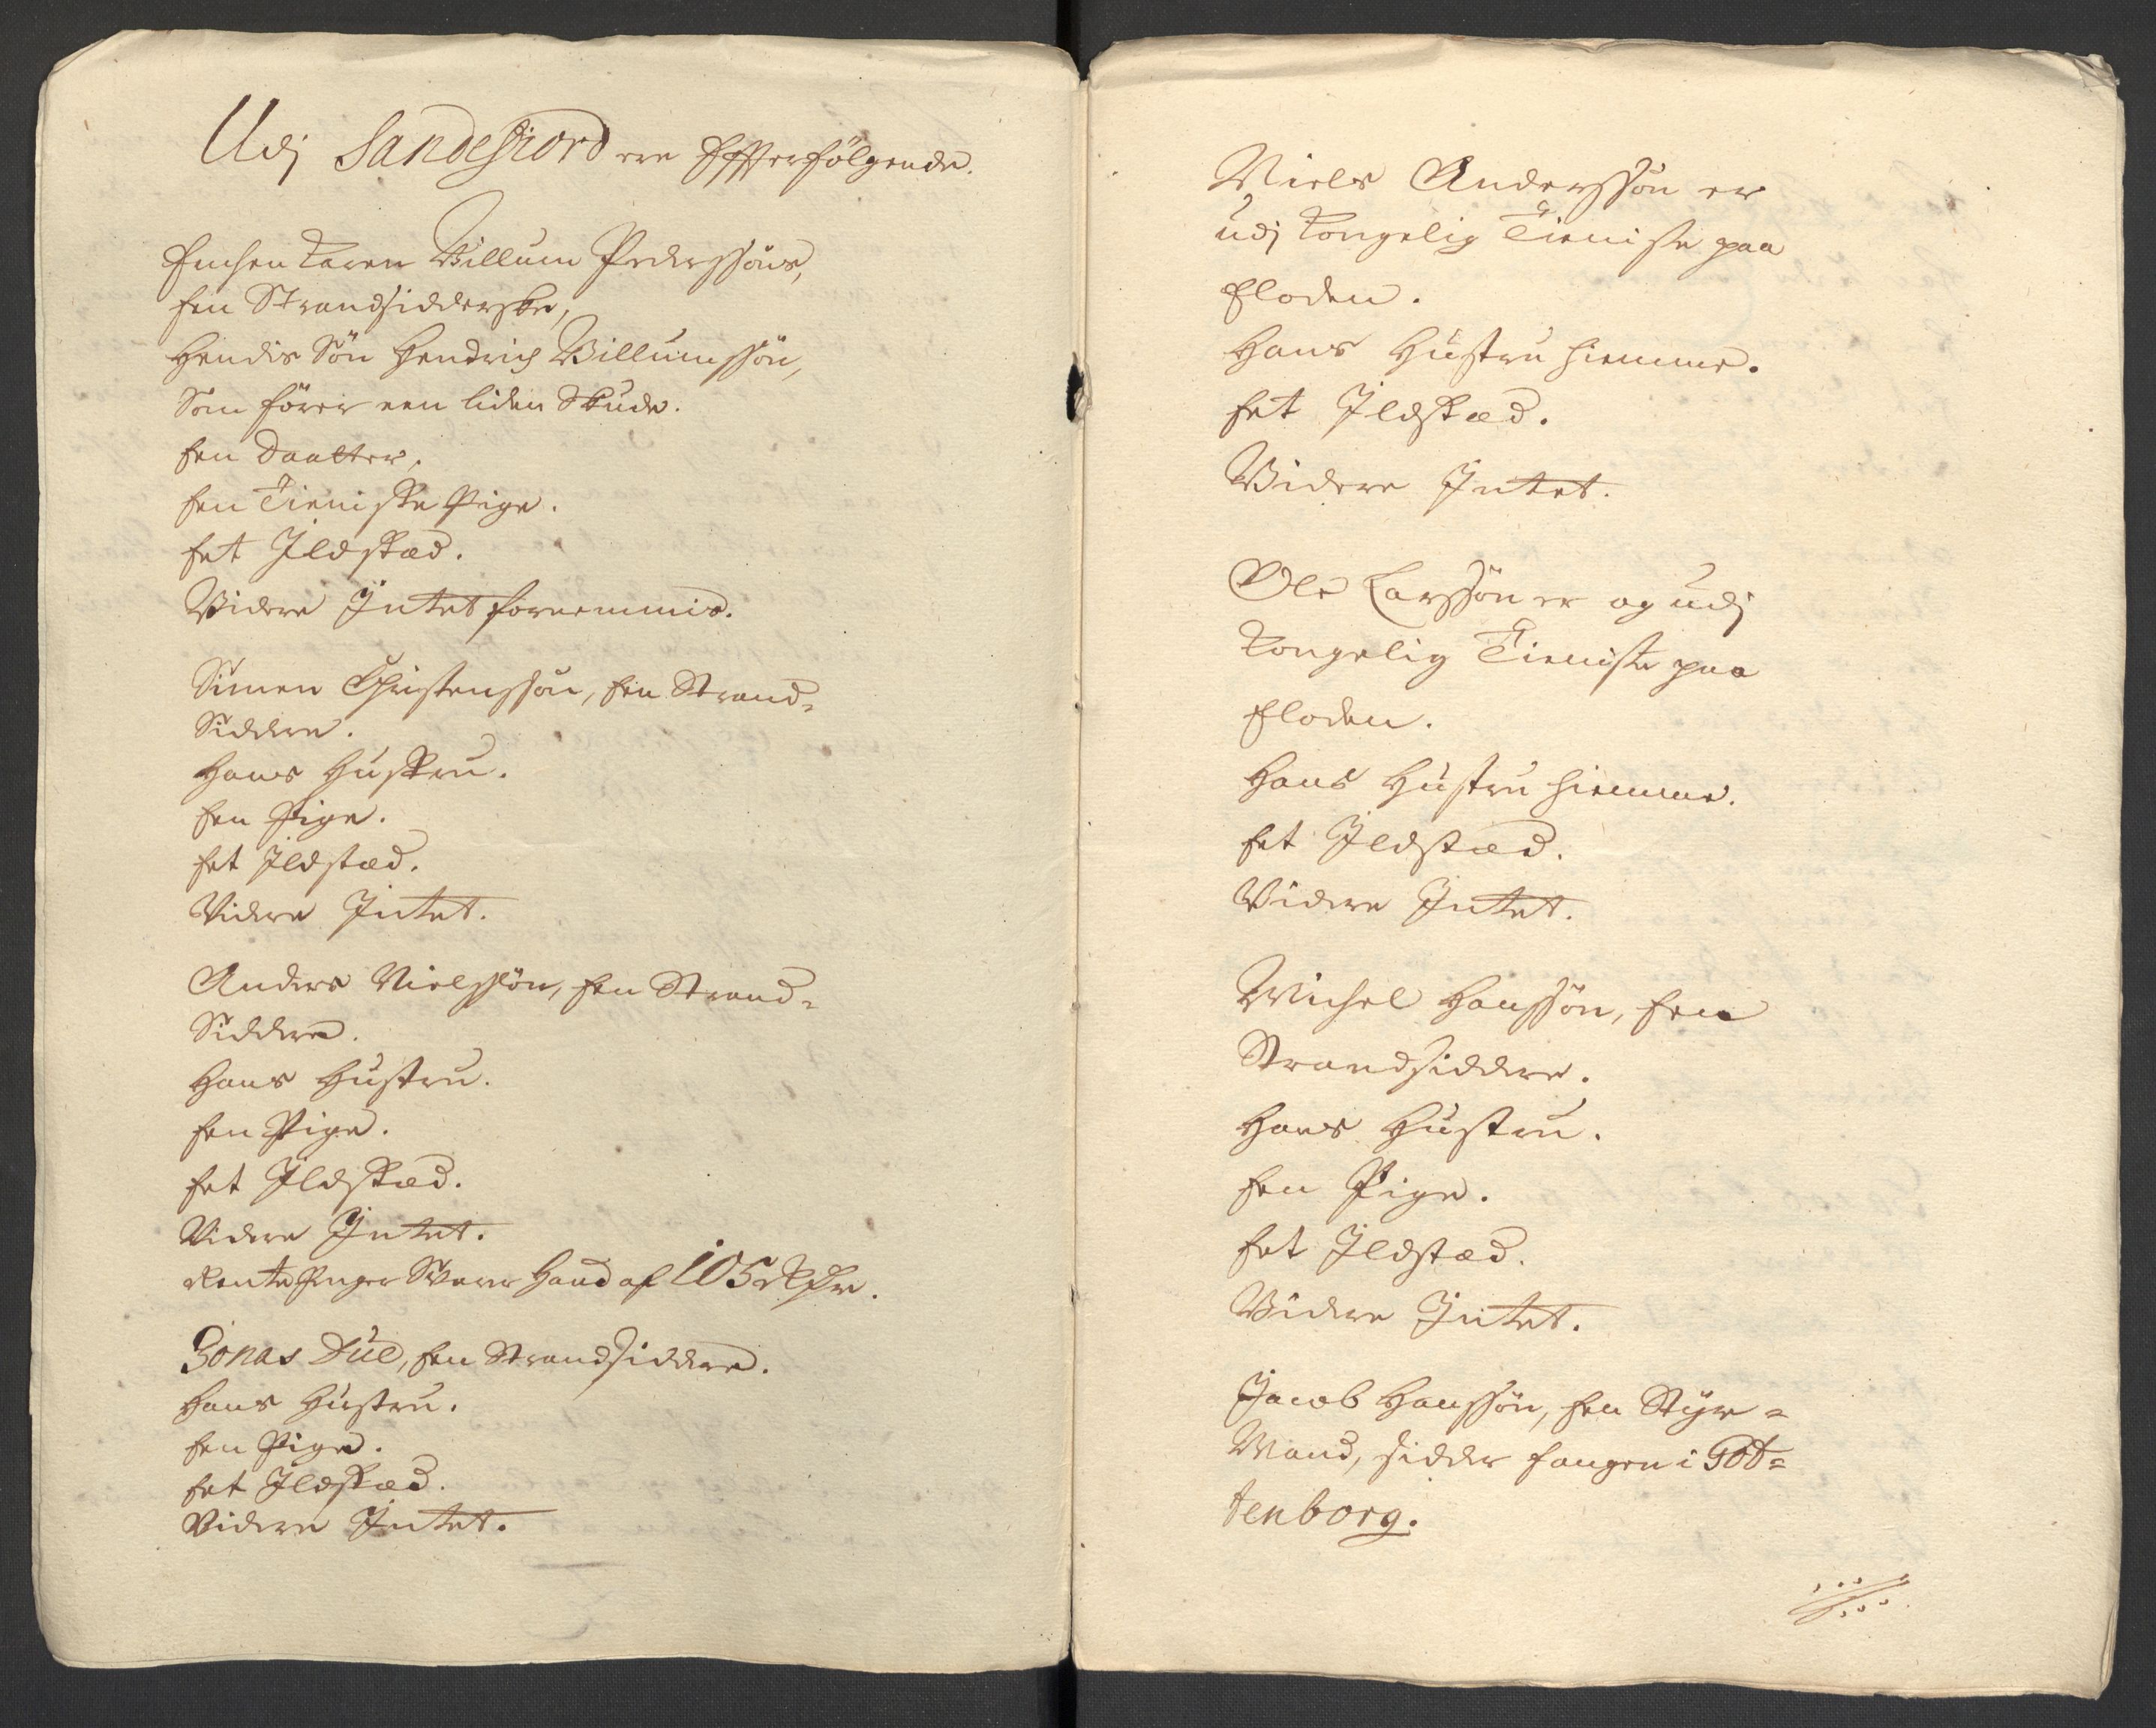 Udj Sandefiord ere Effterfölgende.
Enchen Karen Willum Pederssöns,
Een Strandsidderske,
Hendis Sön Hendrich Willumssön,
Som förer een liden Skude.
Een Daatter.
Een Tieniste Pige.
Eet Ildstæd.
Videre Intet fornemmis.
Simen Christenssön, Een Strand-
Siddere.
Hans Hustru.
Een Pige.
Eet Ildstæd.
Videre Intet.
Anders Nielssön, Een Strand-
Siddere.
Hans Hustru.
Een Pige.
Eet Ildstæd.
Videre Intet.
Rente Penger Svarer Hand af 105 Rdr.
Jonas Due, Een Strandsiddere.
Hans Hustru.
Een Pige.
Eet Ildstæd.
Videre Intet.
Niels Anderssön er
udj Kongelig Tieniste paa
Floden.
Hans Hustru hiemme.
Eet Ildstæd.
Videre Intet.
Ole Larssön er og udj
Kongelig Tieniste paa
Floden.
Hans Hustru hiemme.
Eet Ildstæd.
Videre Intet.
Michel Hanssön, Een
Strandsiddere.
Hans Hustru.
Een Pige.
Eet Ildstæd.
Videre Intet.
Jacob Hanssön, Een Styr-
Mand, sidder fangen i Got-
tenborg.